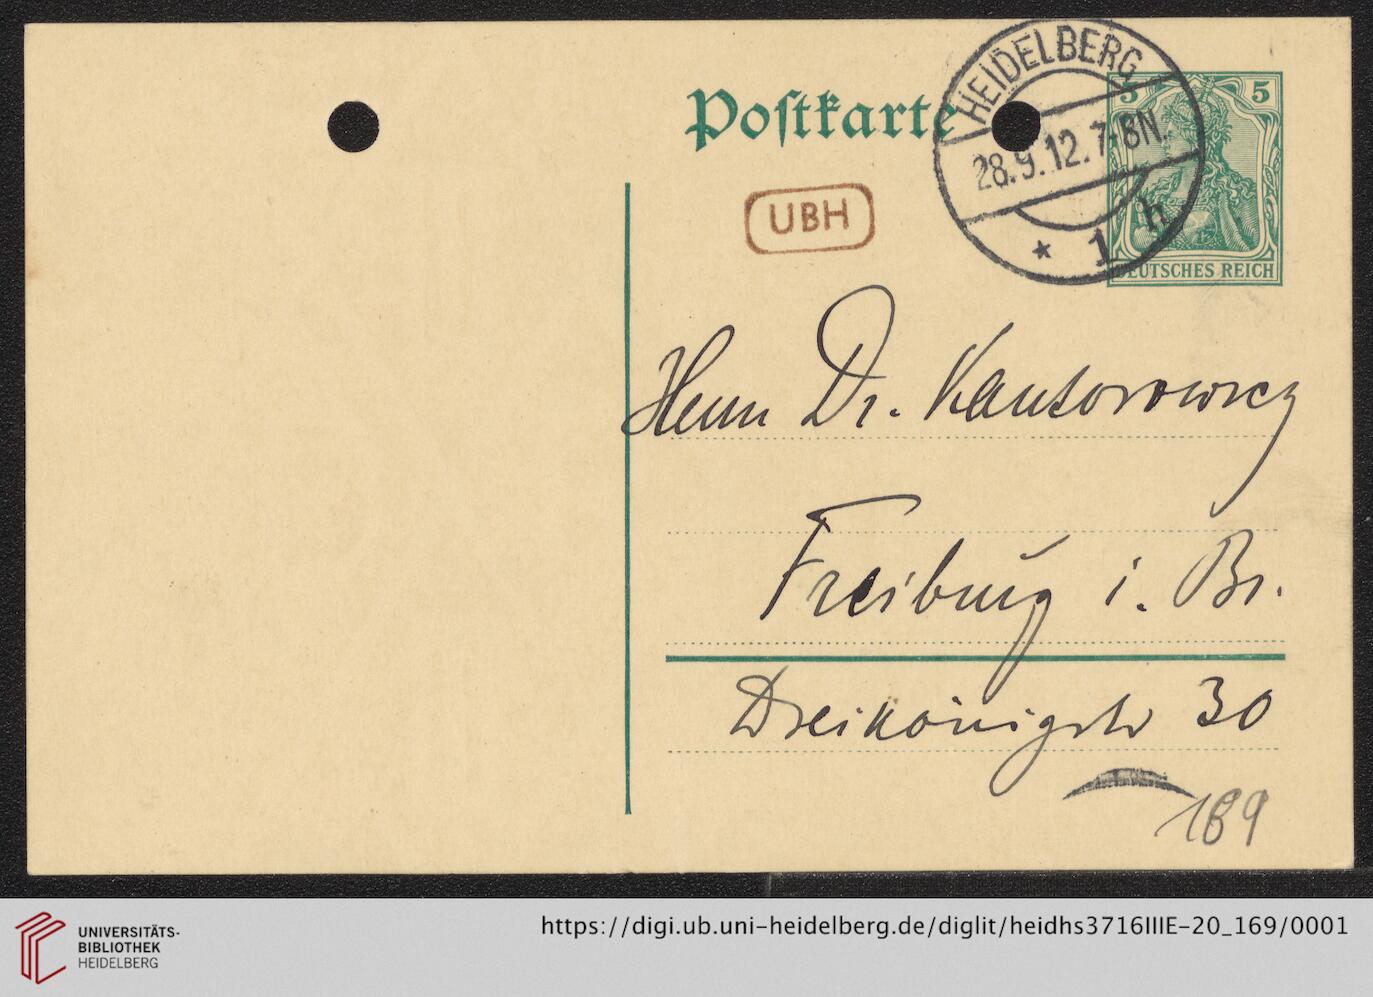 Postkarte
HEIDELBERG
28.9.12.7-8N.
* 1 h
5 5
DEUTSCHES REICH
UBH
Herrn Dr. Kantorowicz
Freiburg i. Br.
Dreikönigstr 30
169
UNIVERSITÄTS-
BIBLIOTHEK
HEIDELBERG
https://digi.ub.uni-heidelberg.de/diglit/heidhs3716IIIE-20_169/0001